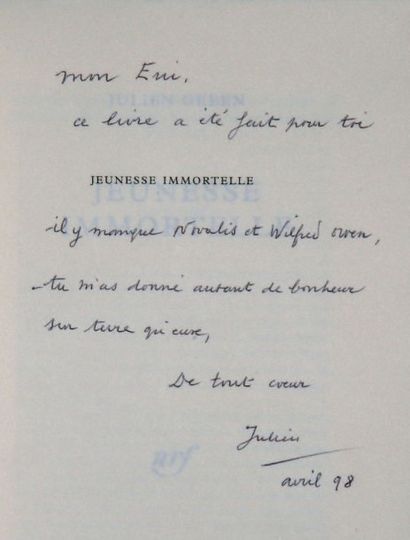 mon Eric,
ce livre a été fait pour toi
JEUNESSE IMMORTELLE
il y manque Novalis et Wilfred Owen,
tu m'as donné autant de bonheur
sur terre qu'eux,
De tout coeur
Julien
avril 98
JULIEN GREEN
JEUNESSE
IMMORTELLE
nrf